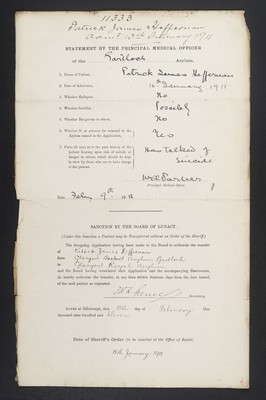 11333
Patrick James Heffernan
Adm. 13th February 1911
STATEMENT BY THE PRINCIPAL MEDICAL OFFICER
of the Gartloch Asylum.
1. Name of Patient, Patrick James Heffernan
2. Date of Admission, 16th January 1911
3. Whether Epileptic, No
4. Whether Suicidal, Possibly
5. Whether Dangerous to others, No
Yes
7. Facts (if any) as to the past history of the
patient bearing upon risk of suicide or
danger to others, which should be kept
in view by those who are to have charge
of the patient.
Has talked of
Suicide
Principal Medical Officer.
Date Feby 9th 1911
SANCTION BY THE BOARD OF LUNACY.
(Under this Sanction a Patient may be Transferred without an Order of the Sheriff.)
The foregoing Application having been made to the Board to authorise the transfer
of Patrick James Heffernan
from Glasgow District Asylum Gartloch
to Glasgow Royal Asylum
and the Board having considered this Application and the accompanying Statements,
do hereby authorise the transfer, at any time within fourteen days from the date hereof,
of the said patient as requested.
Secretary.
DATED at Edinburgh, this day of February
Nineteen hundred and eleven
Date of Sheriff's Order (to be inserted at the Office of Board).
16th January 1911